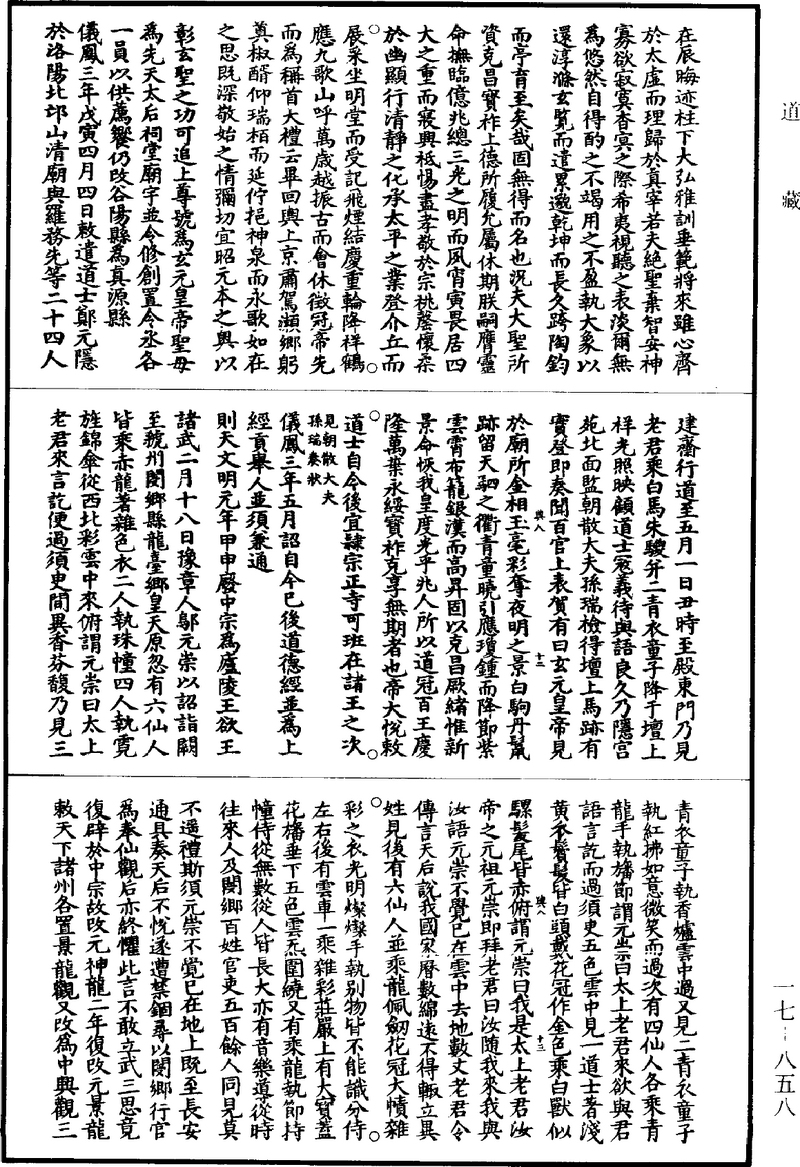 道藏
在辰晦迹柱下大弘雅訓垂範將來雖心齊
於太虛而理歸於真宰若夫絕聖棄智安神
寡欲寂寞杳冥之際希夷視聽之表淡爾無
為悠然自得酌之不竭用之不盈執大象以
還淳滌玄覽而遣累邈乾坤而長久跨陶鈞
而亭育至矣哉固無得而名也況夫大聖所
資克昌寶祚上德所履允屬休期朕嗣膺靈
命撫臨億兆總三光之明而風宵寅畏居四
大之重而寢興祗惕盡孝敬於宗祧罄懷柔
於幽顯行清靜之化承太平之業登介丘而
展采坐明堂而受記飛煙結慶重輪降祥鶴
應九歌山呼萬歲越振古而會休徵冠帝先
而為稱首大禮云畢回輿上京肅駕瀨鄉躬
奠椒醑仰瑞栢而延佇挹神泉而永歌如在
之思既深敬始之情彌切宜昭元本之奧以
彰玄聖之功可追上尊號為玄元皇帝聖母
為先天太后祠堂廟宇並令修創置令丞各
一員以供薦饗仍改谷陽縣為真源縣
儀鳳三年戊寅四月四日敕遣道士鄭元隱
於洛陽北邙山清廟與羅務先等二十四人
建齋行道至五月一日丑時至殿東門乃見
老君乘白馬朱騣并二青衣童子降于壇上
祥光照映顧道士寇義待與語良久乃隱宮
苑北面監朝散大夫孫瑞檢得壇上馬跡有
實登即奏聞百官上表賀有曰玄元皇帝見
於廟所金相玉毫彩奪夜明之景白駒丹鬣
跡留天駟之衢青童曉引應瓊鍾而降節紫
雲霄布籠銀漢而高昇固以克昌厥緒惟新
景命恢我皇度光乎兆人所以道冠百王慶
隆萬葉永綏寶祚克享無期者也帝大悅敕
道士自今後宜隸宗正寺可班在諸王之次
見朝散大夫
孫瑞奏狀
儀鳳三年五月詔自今已後道德經並為上
經貢舉人並須兼通
則天文明元年甲申廢中宗為廬陵王欲王
諸武二月十八日豫章人鄔元崇以詔詣闕
至虢州閿鄉縣龍臺鄉皇天原忽有六仙人
皆乘赤龍著雜色衣二人執珠幢四人執霓
旌錦傘從西北彩雲中來俯謂元崇曰太上
老君來言訖便過須臾間異香芬馥乃見三
青衣童子執香爐雲中過又見二青衣童子
執紅拂如意微笑而過次有四仙人各乘青
龍手執旛節謂元崇曰太上老君來欲與君
語言訖而過須臾五色雲中見一道士著淺
黃衣鬢髮皆白頭戴花冠作金色乘白獸似
騾髮尾皆赤俯謂元崇曰我是太上老君汝
帝之元祖元崇即拜老君曰汝隨我來我與
汝語元崇不覺已在雲中去地數丈老君令
傳言天后說我國家曆數綿遠不得輙立異
姓見後有六仙人並乘龍佩劒花冠大幘雜
彩之衣光明燦燦手執別物皆不能識分侍
左右後有雲車一乘雜彩莊嚴上有大寶蓋
花旛垂下五色雲炁圍繞又有乘龍執節持
幢侍從無數從人皆長大亦有音樂導從時
往來人及閿鄉百姓官吏五百餘人同見莫
不遥禮斯須元崇不覺已在地上既至長安
通具奏天后不悅遂遭禁錮尋以閿鄉行宮
為奉仙觀后亦終懼此言不敢立武三思竟
復辟於中宗故改元神龍二年復改元景龍
敕天下諸州各置景龍觀又改為中興觀三
與八
十二
與八
十三
一七—八五八